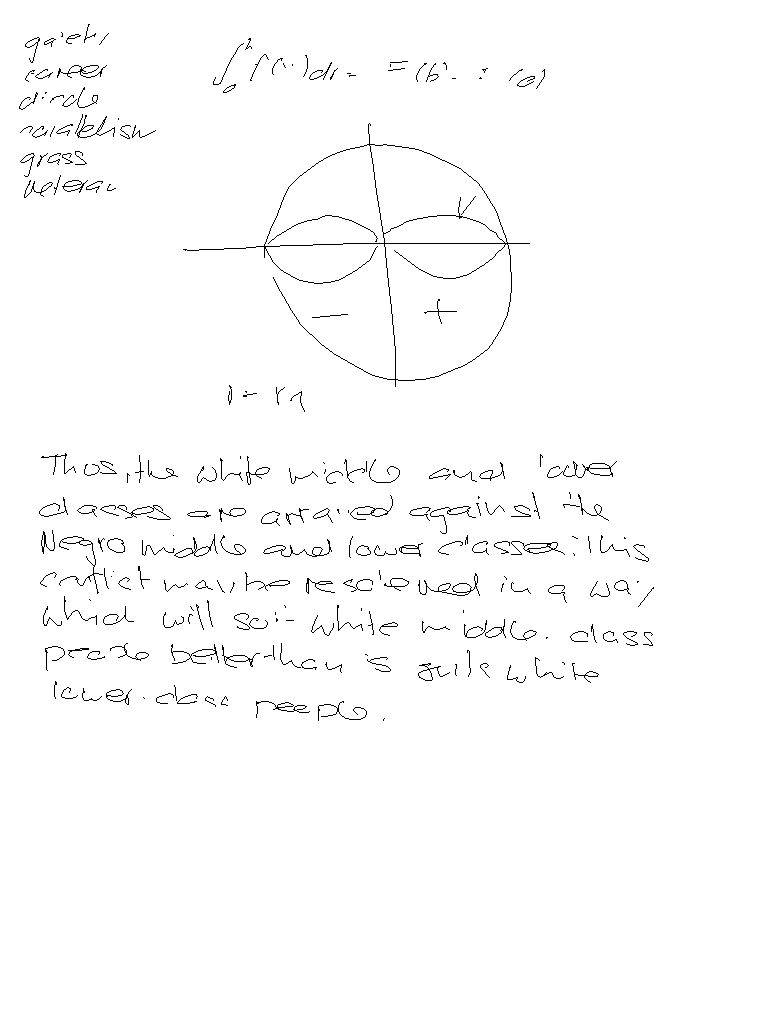 gaiety
career
circle
parallelism
grass
veteran
V
− +
Thus, the white middle and lower
classes are arrayed against the
Negro middle and lower classes. This
conflict may be resolved in a way
which will suit white middle-class
people better than it suits white
lower-class people.